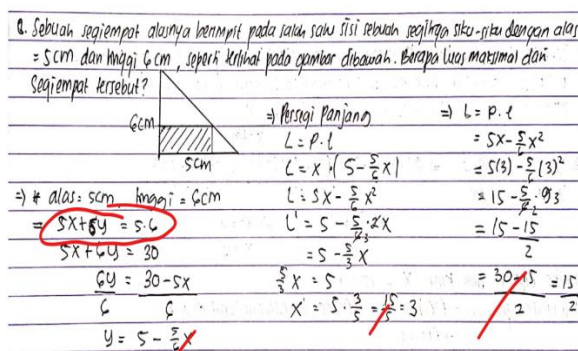 Q. Sebuah segiempat alasnya berimpit pada salah satu sisi sebuah segitiga siku-siku dengan alas
= 5cm dan tinggi 6cm, seperti terlihat pada gambar dibawah. Berapa luas maksimal dari
Segiempat tersebut?
6cm
5cm
=> * alas = 5cm, tinggi = 6cm
= 5x+6y = 5.6
5x+6y = 30
6y/6 = 30-5x/6
y = 5 - 5/6 x
=> Persegi Panjang
L = P.l
L = x.(5-5/6 x)
L = 5x - 5/6 x²
L' = 5 - 5/6 3 .2x
= 5 - 5/3 x
5/3 x = 5
x = 5 . 3/5 = 15/5 = 3
=> L = p.l
= 5x - 5/6 x²
= 5(3) - 5/6 (3)²
= 15 - 5/6 2 . 9 3
= 15 - 15/2
= 30-15/2 = 15/2